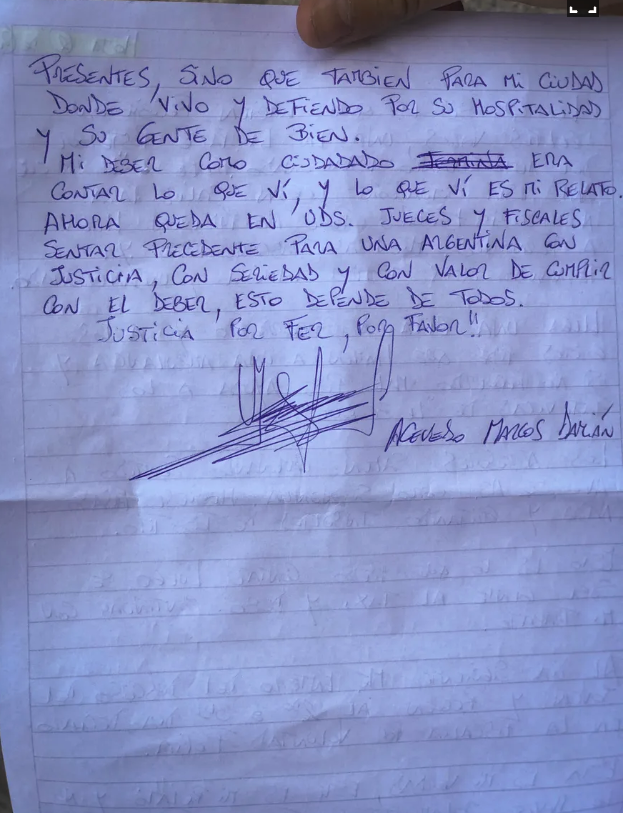 PRESENTES, SINO QUE TAMBIEN PARA MI CIUDAD
DONDE VIVO Y DEFIENDO POR SU HOSPITALIDAD
Y SU GENTE DE BIEN.
MI DEBER COMO CIUDADADO ERA
CONTAR LO QUE VÍ, Y LO QUE VÍ ES MI RELATO.
AHORA QUEDA EN UDS. JUECES Y FISCALES
SENTAR PRECEDENTE PARA UNA ARGENTINA CON
JUSTICIA, CON SERIEDAD Y CON VALOR DE CUMPLIR
CON EL DEBER, ESTO DEPENDE DE TODOS.
JUSTICIA POR FER, POR FAVOR!!
ACEVEDO MARCOS DAMIÁN